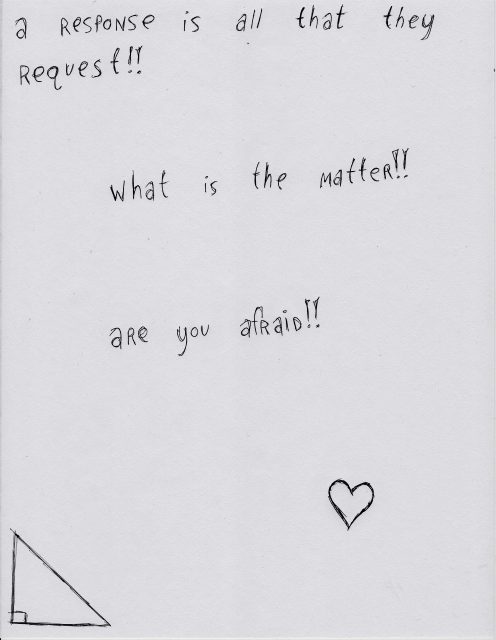 a response is all that they
request!!
what is the matter!!
are you afraid!!